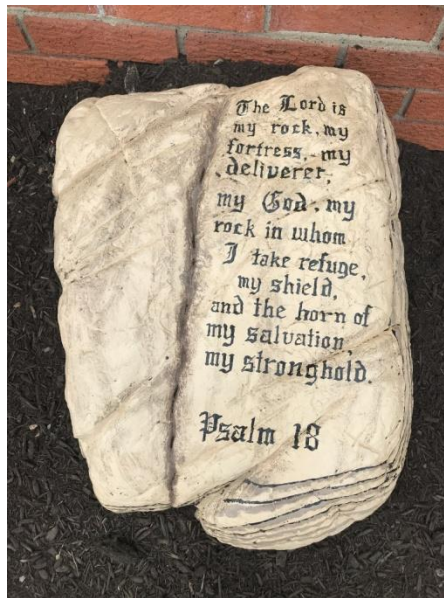 The Lord is
my rock, my
fortress, my
deliverer,
my God, my
rock in whom
I take refuge,
my shield,
and the horn of
my salvation,
my stronghold.
Psalm 18